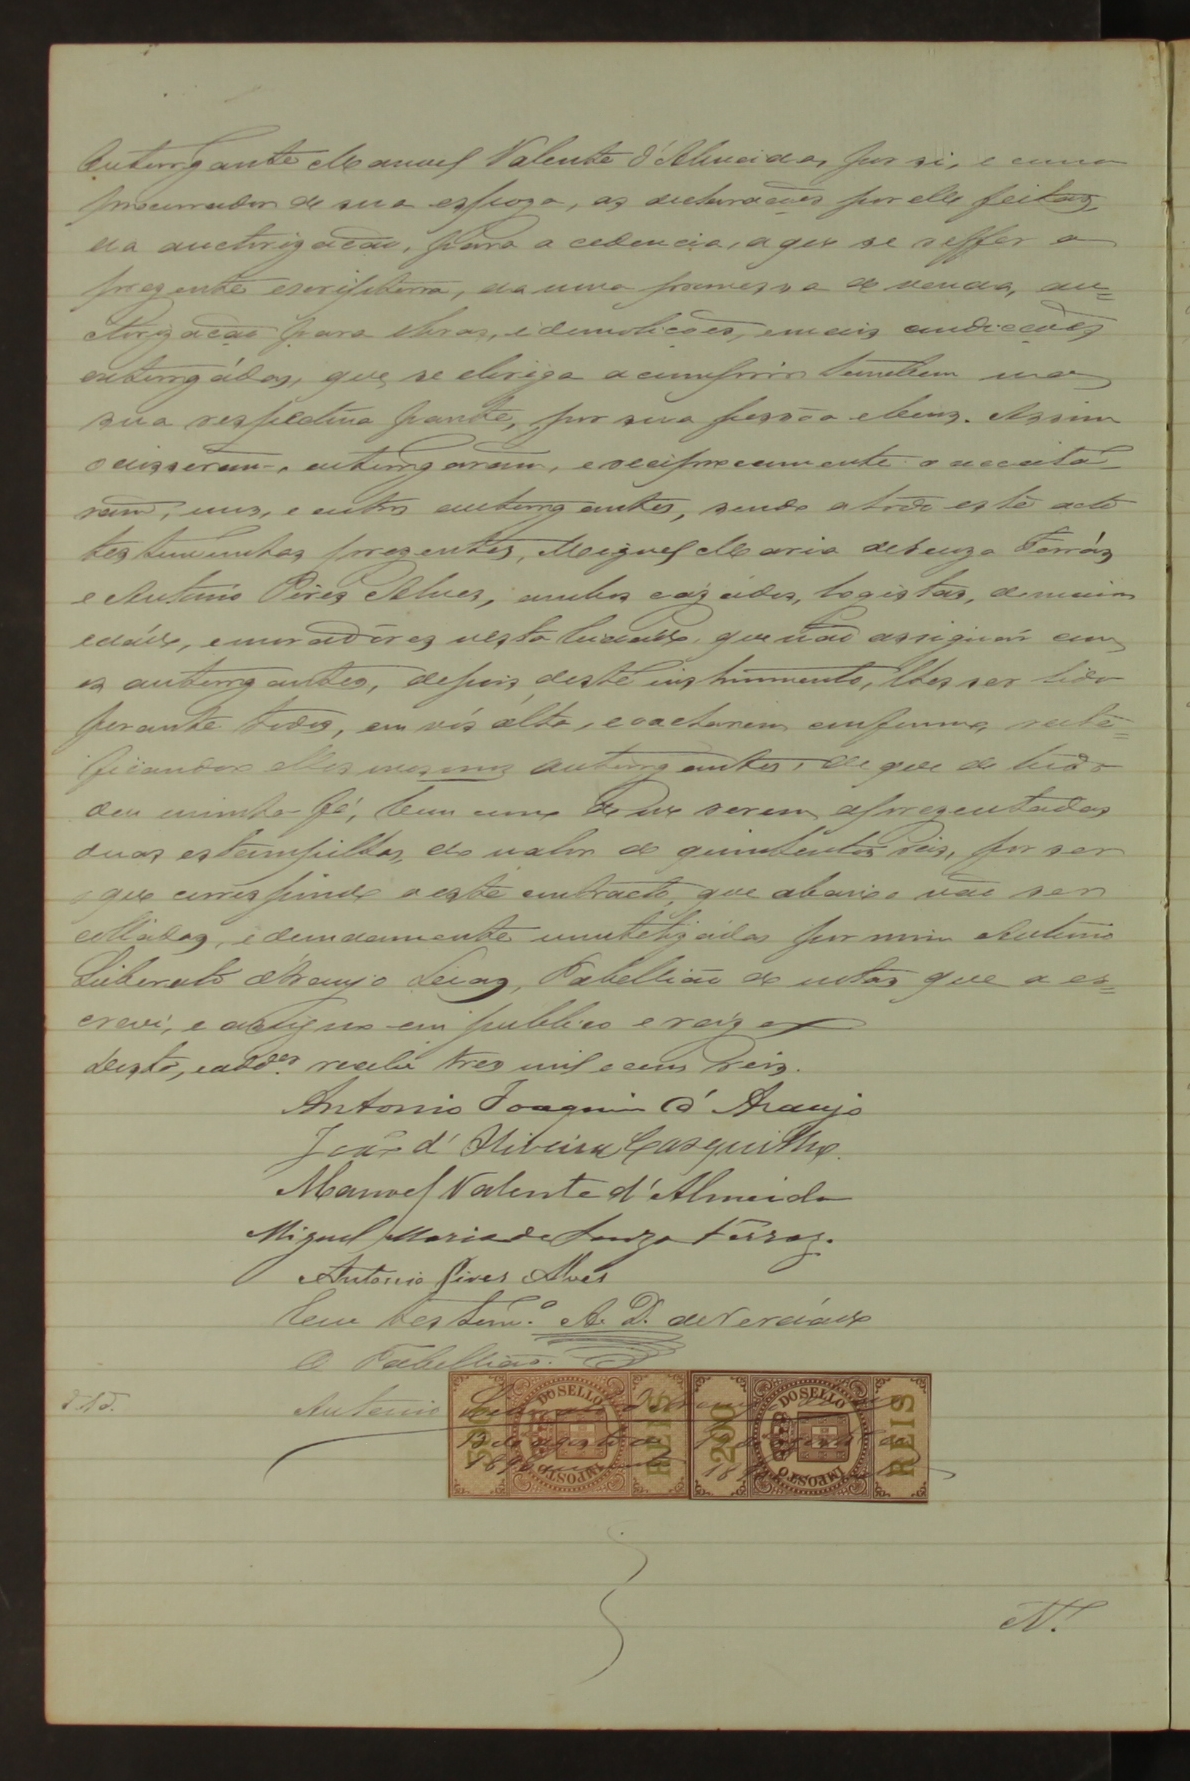 Outorgante Manoel Valente d'Almeida, por si, e como
procurador de sua espoza, as declarações por elle feitas,
na auctorização, para a cedencia, a que se reffer a
prezente escriptura, e a uma promessa de venda, au=
ctorização para obras, e demolições, e mais condicções
outorgádas, que se obriga a cumprir tambem na
sua respectiva parte, por sua pessôa e bens. Assim
o disseram, outorgaram, e reciprocamente o acceitá-
ram, uns, e outros outorgantes, sendo a todo este acto
testemunhas prezentes, Miguel Maria de Souza Ferráz
e António Pires Alves, ambos cazádos, logistas, de maior
edáde, e moradôres nesta cidade, que vão assignár com
os outorgantes, depois deste instrumento, lhes ser lido
perante todos, em vós álta, e o acharem conforme, rate=
ficando-o elles mesmos outorgantes, de que de tudo
dou minha fé, bem como de me serem aprezentadas
duas estampilhas, do valor de quinhentos reis, por ser
o que corresponde a este contracto, que abaixo vão ser
colládas, e devidamente inutilizádas por mim António
Liberato d'Araujo Lucas, Tabellião de notas que a es=
crevi, e assigno em publico e razo
Desta, e add.ºs recebi tres mil e cem reis.
Antonio Joaquim d'Araujo
João d'Oliveira Casquilho.
Manoel Valente d'Almeida
Miguel Maria de Souza Ferraz.
Antonio Pires Alves
Em testem.º A. D. de Verdáde
O Tabellião.
Antonio Liberato d'Araujo
500 DO SELLO IMPOSTO REIS
200 DO SELLO IMPOSTO REIS
N.